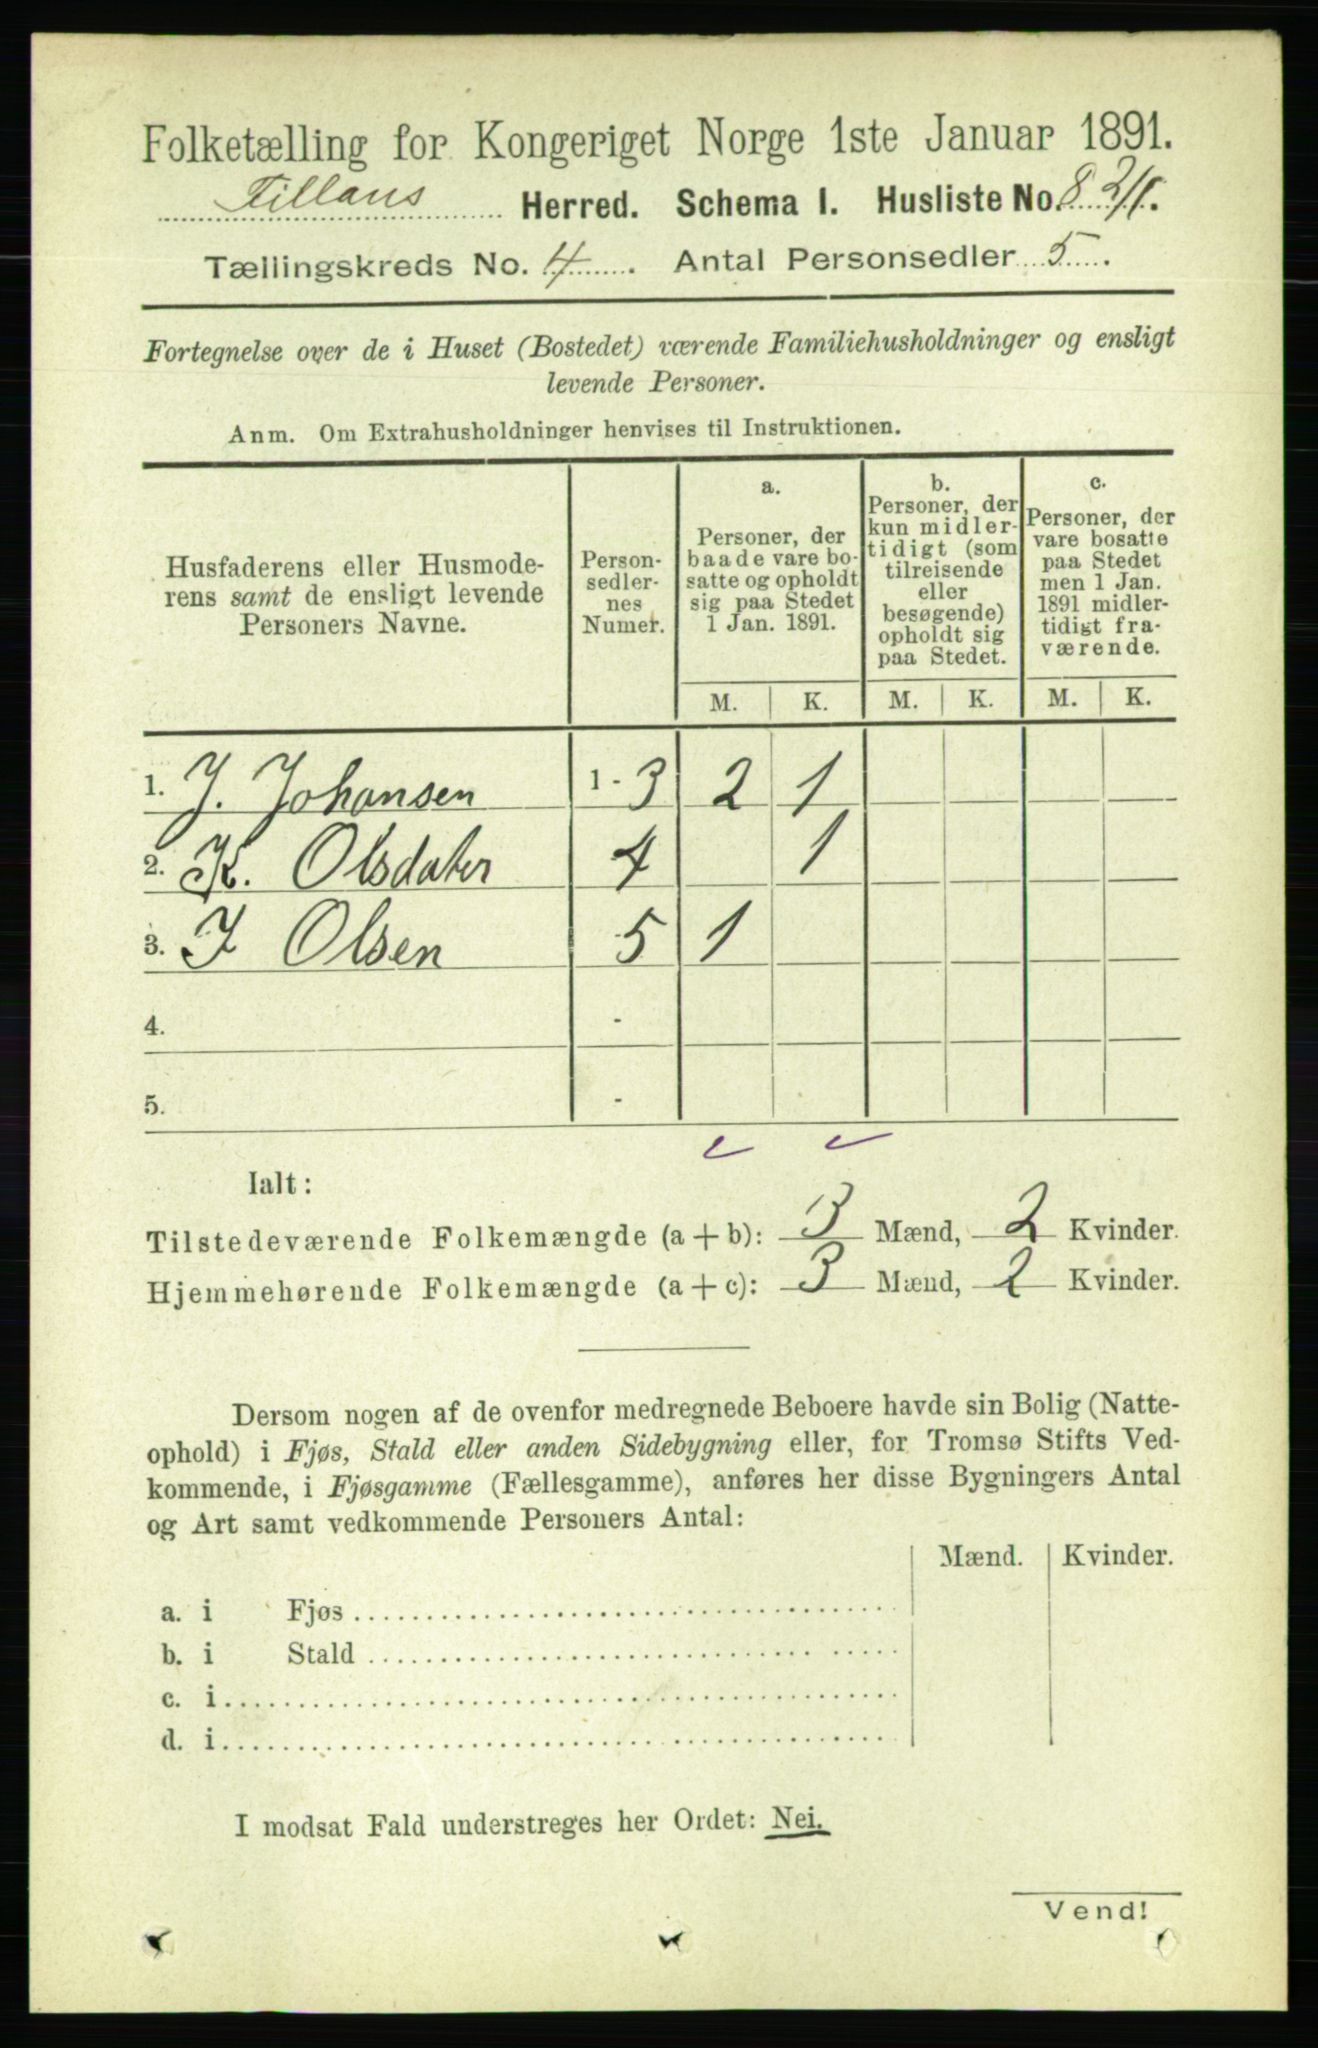 Folketælling for Kongeriget Norge 1ste Januar 1891.
Fillans Herred. Schema 1. Husliste No. 8
Tællingskreds No. 4. Antal Personsedler 5.
Fortegnelse over de i Huset (Bostedet) værende Familiehusholdninger og ensligt
levende Personer.
Anm. Om Extrahusholdninger henvises til Instruktionen.
Husfaderens eller Husmode-
rens samt de ensligt levende
Personers Navne.
Person-
sedler-
nes
Numer.
a.
Personer, der
baade vare bo-
satte og opholdt
sig paa Stedet
1 Jan. 1891.
b.
Personer, der
kun midler-
tidigt (som
tilreisende
eller
besøgende)
opholdt sig
paa Stedet.
c.
Personer, der
vare bosatte
paa Stedet
men 1 Jan.
1891 midler-
tidigt fra-
værende.
M. K. M. K. M. K.
1. J. Johansen 1 - 3 2 1
2. K. Olsdater 4 1
3. J Olsen 5 1
4. -
5. -
Ialt:
Tilstedeværende Folkemængde (a + b): 3 Mænd, 2 Kvinder.
Hjemmehørende Folkemængde (a + c): 3 Mænd, 2 Kvinder.
Dersom nogen af de ovenfor medregnede Beboere havde sin Bolig (Natte-
ophold) i Fjøs, Stald eller anden Sidebygning eller, for Tromsø Stifts Ved-
kommende, i Fjøsgamme (Fællesgamme), anføres her disse Bygningers Antal
og Art samt vedkommende Personers Antal:
Mænd. Kvinder.
a. i Fjøs
b. i Stald
c. i
d. i
I modsat Fald understreges her Ordet: Nei.
Vend!